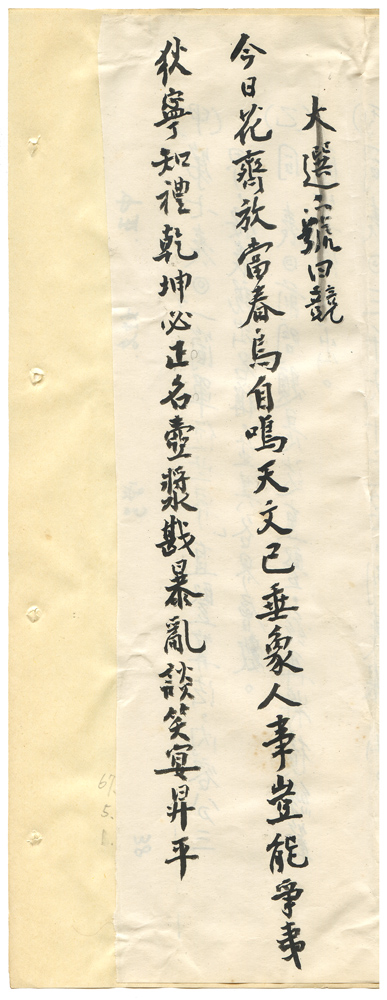 大選號競
今日花齊放當春鳥自鳴天文已垂象人事豈能爭夷
狄寧知禮乾坤必正名壺漿戡暴亂談笑宴昇平
67.
5.
1.